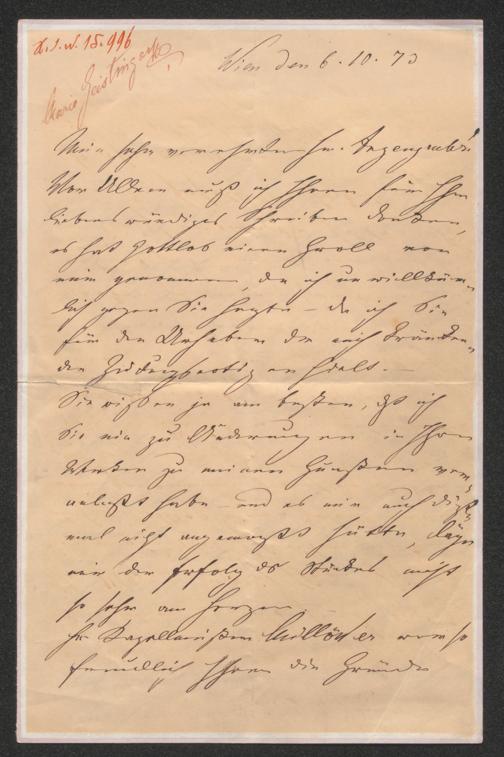 H.I.N. 15.996
Marie Geistinger
Wien den 6.10.73
Mein sehr verehrter Hr. Anzengruber!
Vor Allem muß ich Ihnen für Ihr
liebenswürdiges Schreiben danken,
es hat Gottlob einen Groll von
mir genommen, den ich unwillkür-
lich gegen Sie hegte – da ich Sie
für den Urheber der mich kränken-
den Zeitungsnotiz hielt. –
Sie wissen ja am besten, daß ich
Sie nie zu Änderungen in Ihren
Werken zu meinen Gunsten ver-
anlaßt habe – und es mir auch dieß-
mal nicht angemaßt hätte, läge
mir der Erfolg des Stückes nicht
so sehr am Herzen.
Hr. Kapellmeister Millöcker war so
freundlich Ihnen die Gründe